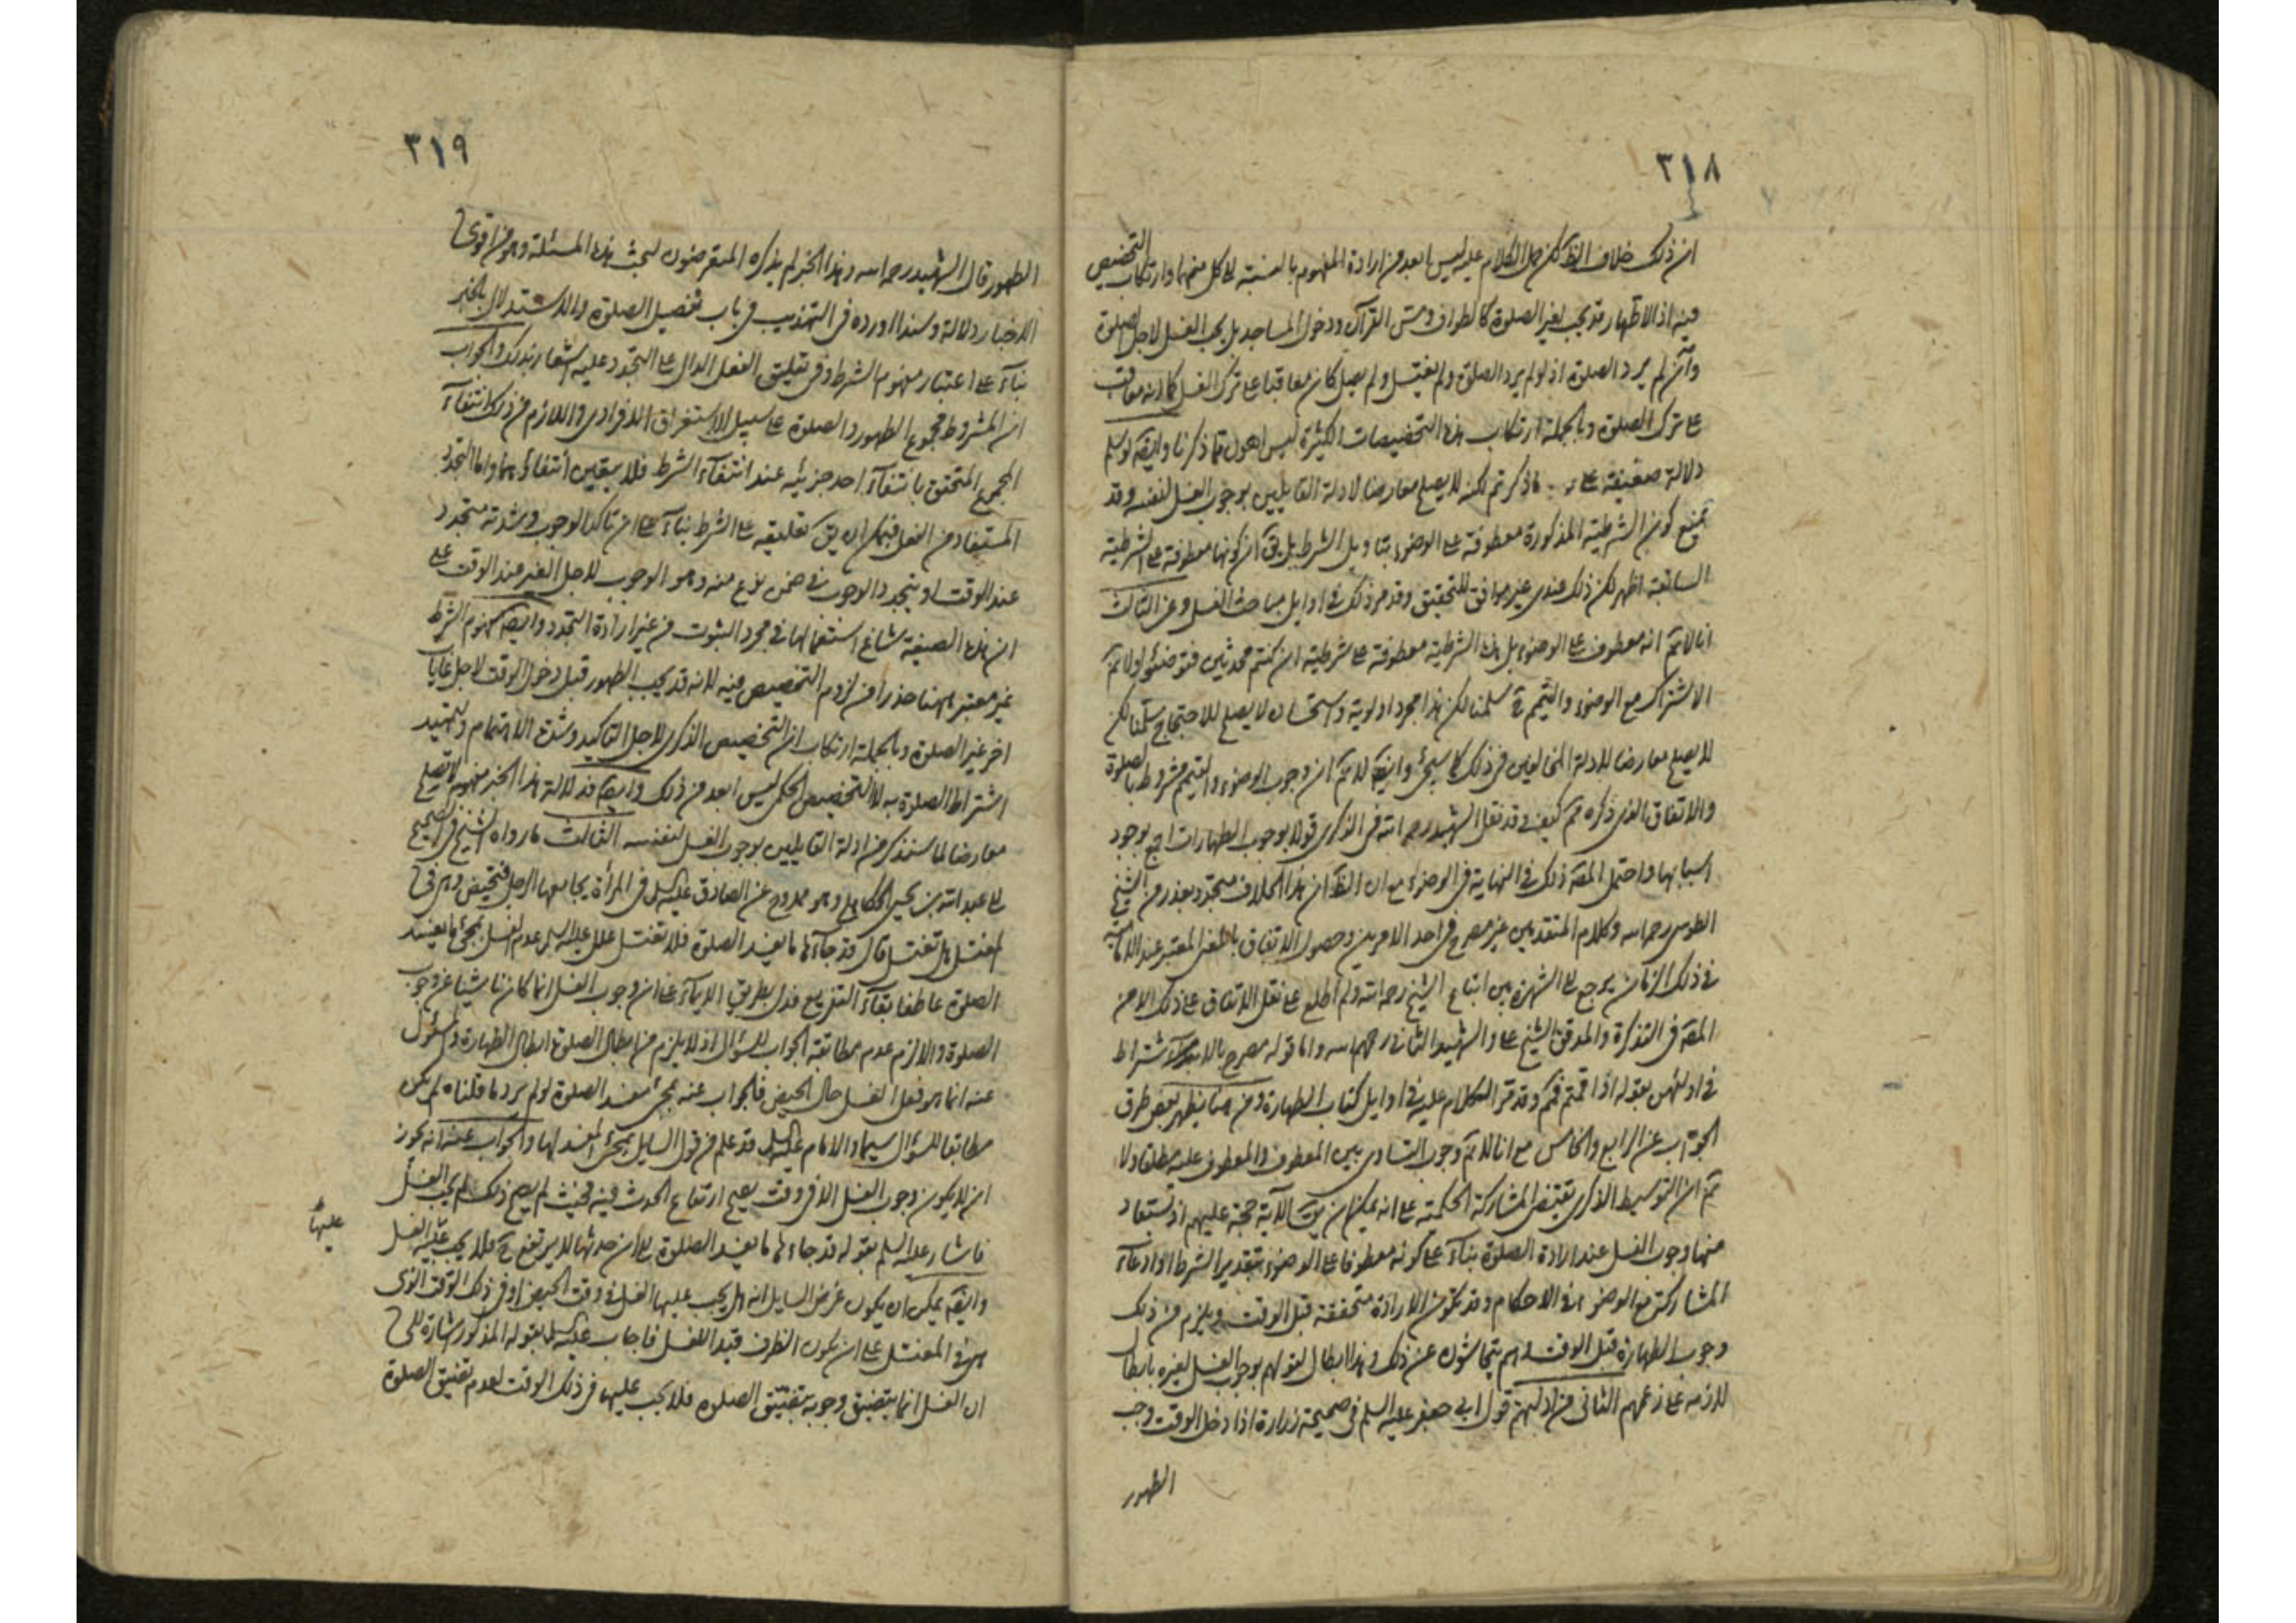 ٣١٨
ان ذلك خلاف الظ لكن حمل الكلام عليه ليس بابعد من ارادة المفهوم بالنسبة الى كل منهما وارتكاب التخصيص
فيه اذ الاظهار قد يجب لغير الصلوة كالطواف ومس القرآن ودخول المساجد بل يجب الغسل لاجل الصلوة
وان لم يرد الصلوة اذ لو لم يرد الصلوة ولم يغتسل ولم يصل كان معاقبا على ترك الغسل كما انه معاقب
على ترك الصلوة وبالجملة ارتكاب هذه التخصيصات الكثيرة ليس اهون مما ذكرنا وايضه لو سلم
دلالة ضعيفة على ما ذكرتم لكنه لا يصلح معارضا لادلة القايلين بوجوب الغسل لنفسه وقد
يمنع كون الشرطية المذكورة معطوفة على الوضوء بتاويل الشرط بل يق ان كونها معطوفة على الشرطية
السابقة اظهر لكن ذلك عندى غير موافق للتحقيق وقد مر ذلك في اوايل مباحث الغسل وعن الثالث
انا لا نم انه معطوف على الوضوء بل هذه الشرطية معطوفة على شرطية ان كنتم محدثين فتوضئوا ولا نم
الاشتراك مع الوضوء والتيمم ح سلمنا لكن هذا مجرد اولوية واستحسان لا يصلح للاحتجاج سلمنا لكن
لا يصلح معارضا للادلة المخالفين في ذلك كما سيجئ وايضه لا نم ان وجوب الوضوء والتيمم مشروط بالصلوة
والاتفاق الذى ذكره نم كيف وقد نقل الشهيد رحمه الله فى الذكرى قولا بوجوب الطهارات اجمع بوجود
اسبابها واحتمل المصه ذلك في النهاية فى الوضوء مع ان الظ ان هذا الخلاف متجدد بعد زمن الشيخ
الطوسى رحمه الله وكلام المتقدمين غير مصرح فى احد الامرين وحصول الاتفاق بالمعنى المعتبر عند الامامية
في ذلك الزمان يرجع الى الشهرة بين اتباع الشيخ رحمه الله ولم اطلع على نقل الاتفاق على ذلك الا من
المصه فى التذكرة والمدقق الشيخ على والشهيد الثانى رحمهم الله واما قوله مصرح بالاشتراط
في اولهن بقوله اذا قمتم فمم وقد مر الكلام عليه في اوايل كتاب الطهارة ومن هنا يظهر بعض طرق
الجواب عن الرابع والخامس مع انا لا نم وجوب التساوى بين المعطوف والمعطوف عليه مطلقا ولا
نم ان التوسيط الذكرى يقتضى المشاركة الحكمية على انه يمكن ان يق الآية حجة عليهم اذ يستفاد
منها وجوب الغسل عند ارادة الصلوة بناء على كونه معطوفا على الوضوء بتقدير الشرط او ادعاء
المشاركة مع الوضوء في الاحكام وقد يكون الارادة متحققة قبل الوقت ويلزم من ذلك
وجوب الطهارة قبل الوقت وهم يتحاشون عن ذلك وهذا ابطال لقولهم بوجوب الغسل لغيره بابطال
لازمه على زعمهم الثانى من ادلتهم قول ابي جعفر عليه السلم فى صحيحة زرارة اذا دخل الوقت وجب
الطهور
٣١٩
الطهور قال الشهيد رحمه الله وهذا الخبر لم يذكره المتعرضون لبحث هذه المسئلة وهو من اقوى
الاخبار دلالة وسندا اورده فى التهذيب فى باب تفصيل الصلوة والاستدلال بالخبر
بناء على اعتبار مفهوم الشرط وفى تعليق الفعل الدال على التجدد عليه اشعار بذلك والجواب
ان المشروط مجموع الطهور والصلوة على سبيل الاستغراق الافرادى واللازم من ذلك انتفاء
المجموع المتحقق بانتفاء احد جزئيه عند انتفاء الشرط فلا يتعين انتفائهما واما التجدد
المستفاد من الفعل فيمكن ان يق تعليقه على الشرط بناء على ان تاكد الوجوب وشدته متجدد
عند الوقت او يتجدد الوجوب في ضمن نوع منه وهو الوجوب لاجل الغير عند الوقت على
ان هذه الصيغة شاع استعمالها في مجرد الثبوت من غير ارادة التجدد وايضه مفهوم الشرط
غير معتبر ههنا حذرا من لزوم التخصيص فيه لانه قد يجب الطهور قبل دخول الوقت لاجل غايات
اخر غير الصلوة وبالجملة ارتكاب ان التخصيص الذكرى لاجل التاكيد وشدة الاهتمام وتمهيد
اشتراط الصلوة به لا التخصيص الحكمى ليس ابعد من ذلك وايضه فدلالة هذا الخبر مفهوم لا يصلح
معارضا لما سنذكر من ادلة القايلين بوجوب الغسل لنفسه الثالث ما رواه الشيخ فى الصحيح
الى عبد الله بن يحيى الكاهلى وهو ممدوح عن الصادق عليه السلم فى المرأة يجامعها الرجل فتحيض وهى فى
المغتسل هل تغتسل قال قد جاءها ما يفسد الصلوة فلا تغتسل علل عليه السلم عدم الغسل بمجئ ما يفسد
الصلوة عاطفا بفاء التفريع فدل بطريق الايماء على ان وجوب الغسل انما كان ناشيا عن وجوب
الصلوة والا لزم عدم مطابقة الجواب للسؤال اذ لا يلزم من ابطال الصلوة ابطال الطهارة والمسئول
عنه انما هو فعل الغسل حال الحيض فالجواب عنه بمجئ مفسد الصلوة لو لم يرد ما قلناه لم يكن
مطابقا للسؤال سيما والامام عليه السلم قد علم من قول السايل بمجئ المفسد لها والجواب عنه انه يجوز
ان لا يكون وجوب الغسل الا فى وقت يصح ارتفاع الحدث فيه فحيث لم يصح ذلك لم يجب الغسل
فاشار عليه السلم بقوله قد جاءها ما يفسد الصلوة الى ان حدثها لا يرتفع ح فلا يجب عليها الغسل
عليها
وايضه يمكن ان يكون غرض السايل انه هل يجب عليها الغسل فى وقت الحيض او فى ذلك الوقت الذى
هى في المغتسل على ان يكون الظرف قيدا للغسل فاجاب عليه السلم بقوله المذكور اشارة الى
ان الغسل انما يتضيق وجوبه بتضيق الصلوة فلا يجب عليها فى ذلك الوقت لعدم تضيق الصلوة